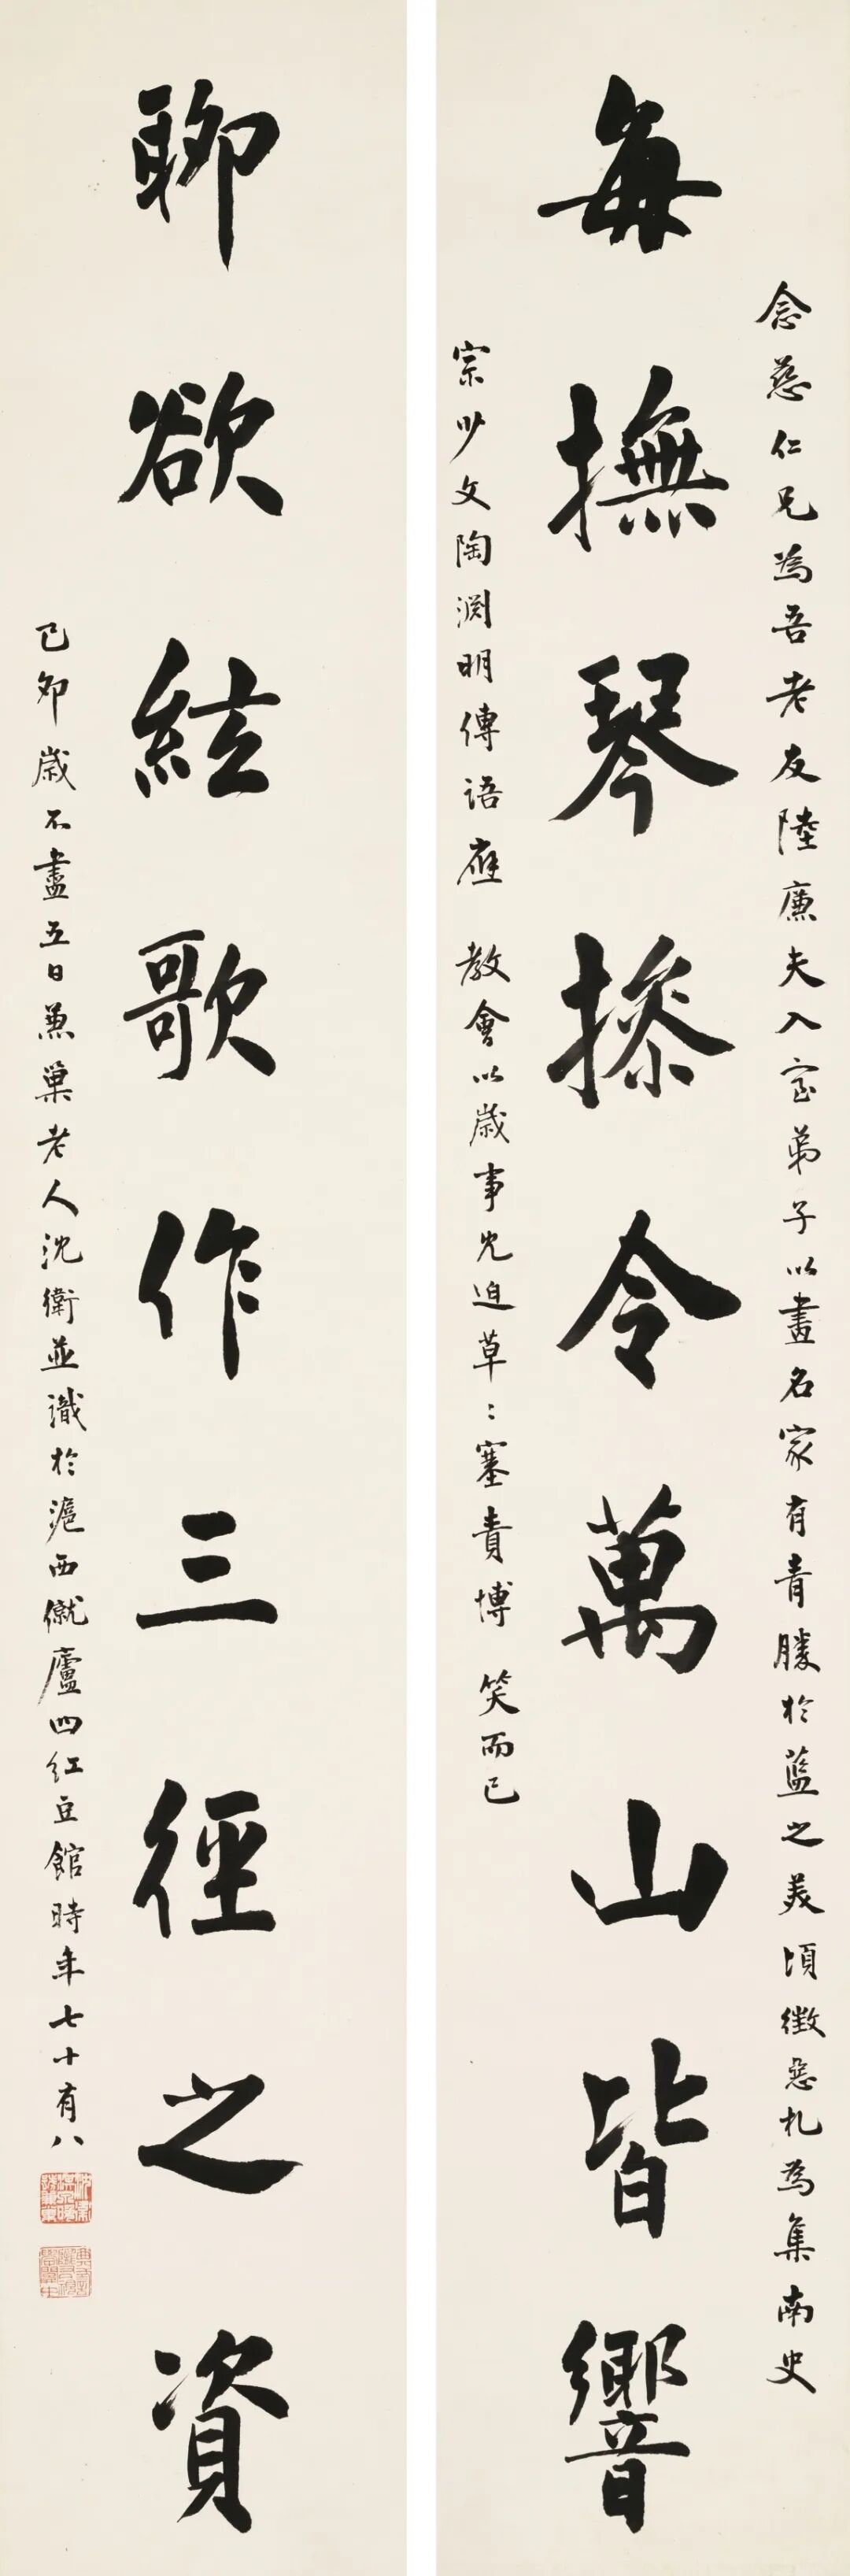 念慈仁兄為吾老友陸廉夫入室弟子以畫名家有青勝於藍之美頃徵惡札為集南史
每撫琴操令萬山皆響
宗少文陶淵明傳語應 教會以歲事尤迫草〻塞責博 笑而已
聊欲絃歌作三徑之資
己卯歲不盡五日兼巢老人沈衛並識於滬西僦廬四紅豆館時年七十有八